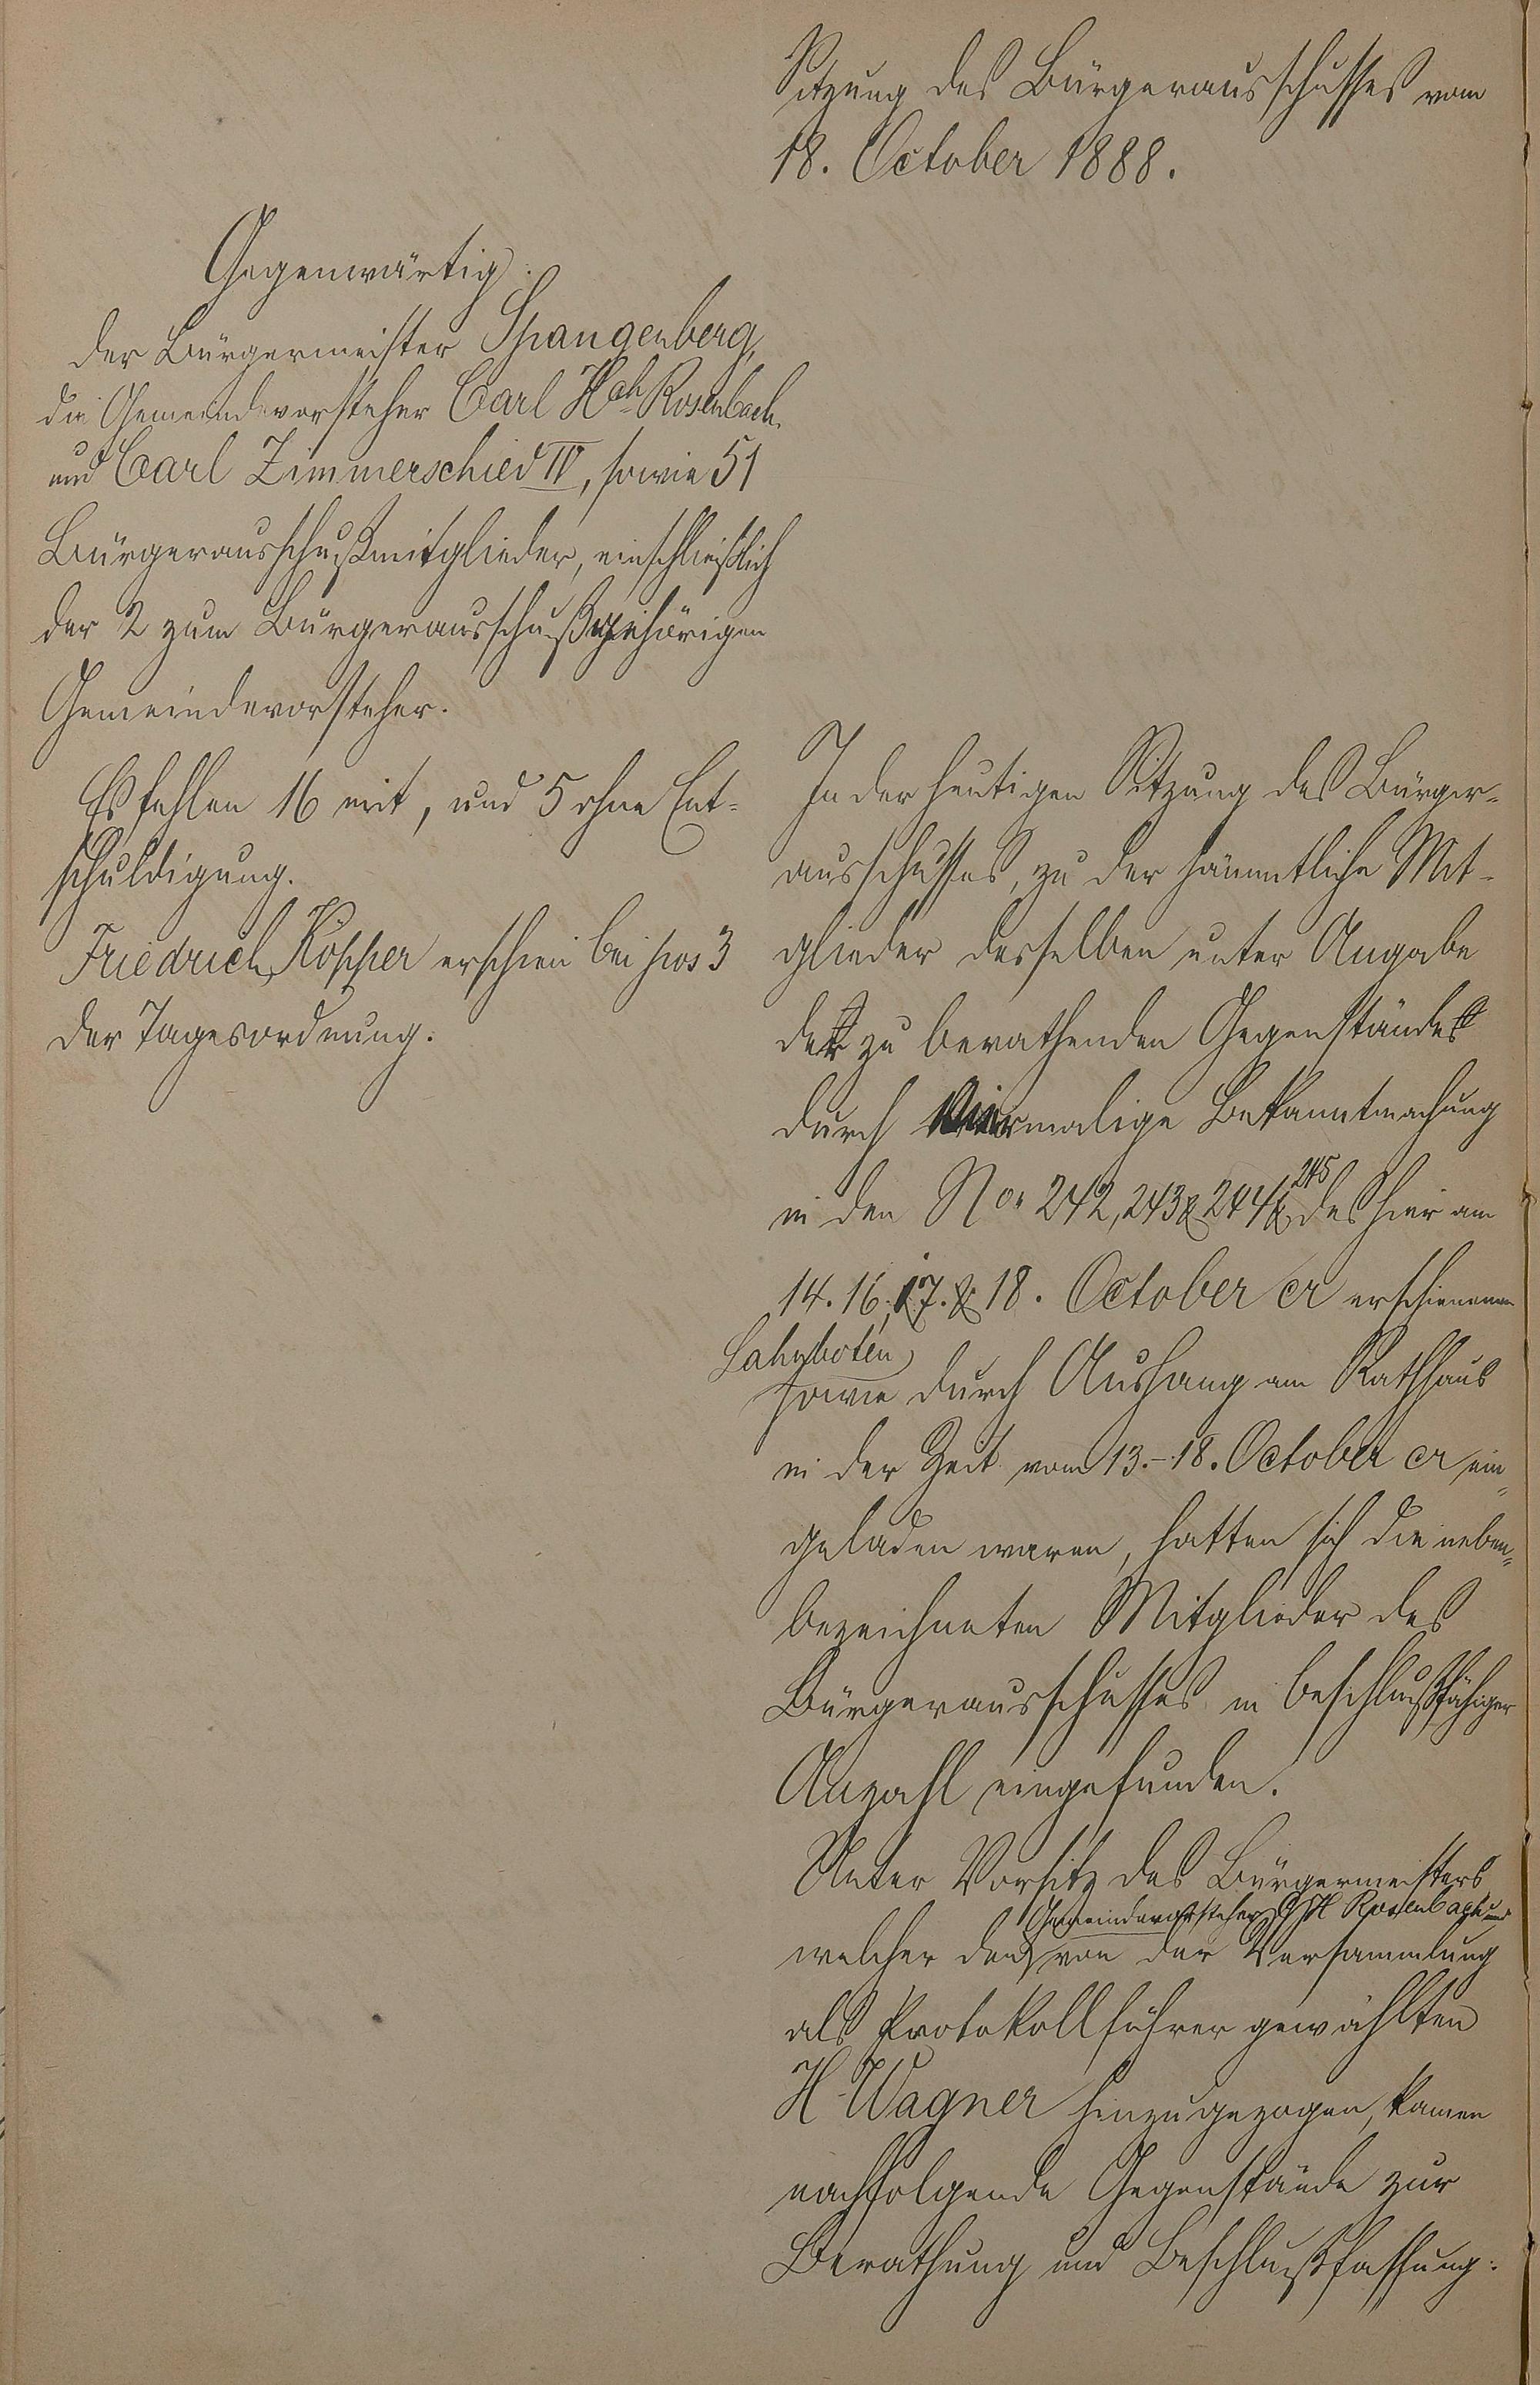 Sitzung des Bürgerausschusses vom
18. October 1888.
Gegenwärtig:
der Bürgermeister Spangenberg,
die Gemeindevorsteher Carl Hch Rosenbach
und Carl Zimmerschied IV, sowie 51
Bürgerausschußmitglieder, einschließlich
der 2 zum Bürgerausschuß gehörigen
Gemeindevorsteher.
Es fehlen 16 mit, und 5 ohne Ent-
schuldigung.
Friedrich Köpper erschien bei pos 3
der Tagesordnung.
In der heutigen Sitzung des Bürger-
ausschusses, zu der sämmtliche Mit-
glieder desselben unter Angabe
des zu berathenden Gegenstandes
durch viermalige Bekanntmachung
in den No. 242, 243 & 244 & 245 des hier am
14. 16. 17. & 18. October cr erschienenen
Lahnboten
sowie durch Aushang am Rathhaus
in der Zeit vom 13.-18. October cr ein-
geladen waren, hatten sich die neben-
bezeichneten Mitglieder des
Bürgerausschusses in beschlußfähiger
Anzahl eingefunden.
Unter Vorsitz des Bürgermeisters
Gemeindevorsteher C H Rosenbach und
welcher den von der Versammlung
als Protokollführer gewählten
H. Wagner hinzugezogen, kamen
nachfolgende Gegenstände zur
Berathung und Beschlußfassung: